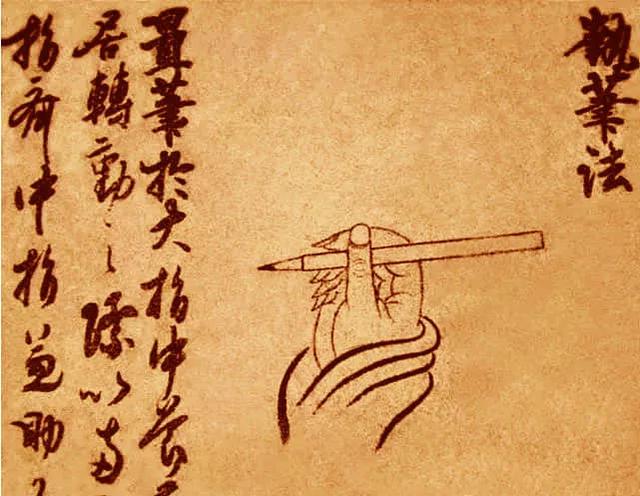 執筆法
置筆於大指中節
居轉動之際以
指齊中指兼助